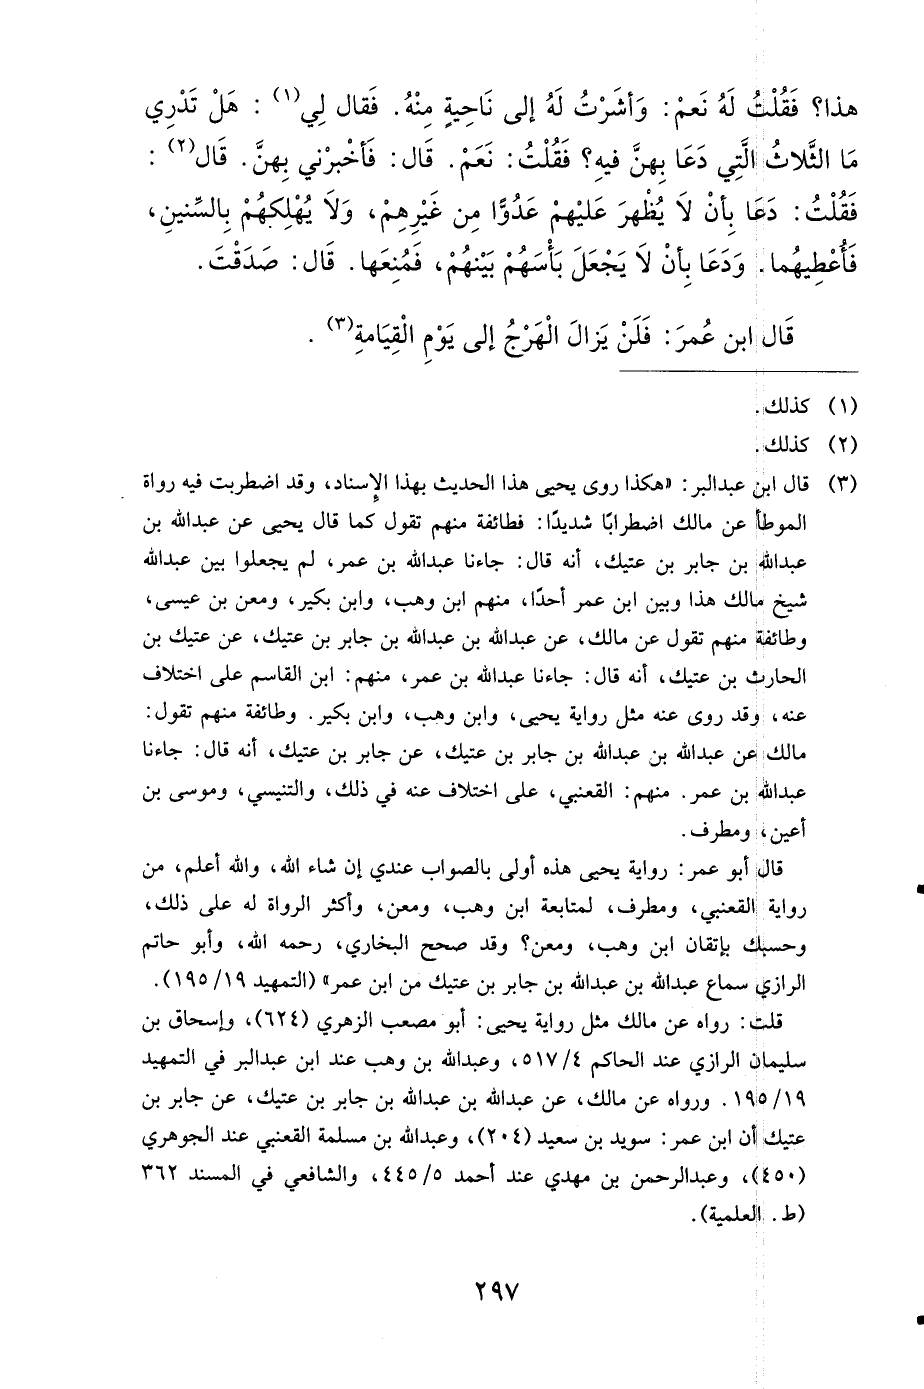 هذا؟ فَقُلْتُ لَهُ نَعمْ: وَأشَرْتُ لَهُ إلى نَاحِيةٍ مِنْهُ. فَقال لِي(١) : هَلْ تَدْرِي
مَا الثَّلاثُ الَّتِي دَعَا بِهنَّ فيهِ؟ فَقُلْتُ: نَعَمْ. قَال: فَأخْبِرْني بِهِنَّ. قَال(٢) :
فَقُلْتُ: دَعَا بِأنْ لَا يُظْهِرَ عَلَيْهِمْ عَدُوًّا مِن غَيْرِهِمْ، وَلَا يُهْلِكَهُمْ بِالسِّنين،
فَأُعْطِيهُما. وَدَعَا بِأنْ لَا يَجْعَلَ بَأْسَهُمْ بَيْنهُمْ، فَمُنِعَها. قَال: صَدَقْتَ.
قَال ابن عُمرَ: فَلَنْ يَزالَ الْهَرْجُ إلى يَوْمِ الْقِيَامةِ(٣) .
(١) كذلك.
(٢) كذلك.
(٣) قال ابن عبدالبر: «هكذا روى يحيى هذا الحديث بهذا الإسناد، وقد اضطربت فيه رواة
الموطأ عن مالك اضطرابًا شديدًا: فطائفة منهم تقول كما قال يحيى عن عبدالله بن
عبدالله بن جابر بن عتيك، أنه قال: جاءنا عبدالله بن عمر، لم يجعلوا بين عبدالله
شيخ مالك هذا وبين ابن عمر أحدًا، منهم ابن وهب، وابن بكير، ومعن بن عيسى،
وطائفة منهم تقول عن مالك، عن عبدالله بن عبدالله بن جابر بن عتيك، عن عتيك بن
الحارث بن عتيك، أنه قال: جاءنا عبدالله بن عمر، منهم: ابن القاسم على اختلاف
عنه، وقد روى عنه مثل رواية يحيى، وابن وهب، وابن بكير. وطائفة منهم تقول:
مالك عن عبدالله بن عبدالله بن جابر بن عتيك، عن جابر بن عتيك، أنه قال: جاءنا
عبدالله بن عمر. منهم: القعنبي، على اختلاف عنه في ذلك، والتنيسي، وموسى بن
أعين، ومطرف.
قال أبو عمر: رواية يحيى هذه أولى بالصواب عندي إن شاء الله، والله أعلم، من
رواية القعنبي، ومطرف، لمتابعة ابن وهب، ومعن، وأكثر الرواة له على ذلك،
وحسبك بإتقان ابن وهب، ومعن؟ وقد صحح البخاري، رحمه الله، وأبو حاتم
الرازي سماع عبدالله بن عبدالله بن جابر بن عتيك من ابن عمر» (التمهيد ١٩/ ١٩٥).
قلت: رواه عن مالك مثل رواية يحيى: أبو مصعب الزهري (٦٢٤)، وإسحاق بن
سليمان الرازي عند الحاكم ٤/ ٥١٧، وعبدالله بن وهب عند ابن عبدالبر في التمهيد
١٩/ ١٩٥. ورواه عن مالك، عن عبدالله بن عبدالله بن جابر بن عتيك، عن جابر بن
عتيك أن ابن عمر: سويد بن سعيد (٢٠٤)، وعبدالله بن مسلمة القعنبي عند الجوهري
(٤٥٠)، وعبدالرحمن بن مهدي عند أحمد ٥/ ٤٤٥، والشافعي في المسند ٣٦٢
(ط. العلمية).
٢٩٧